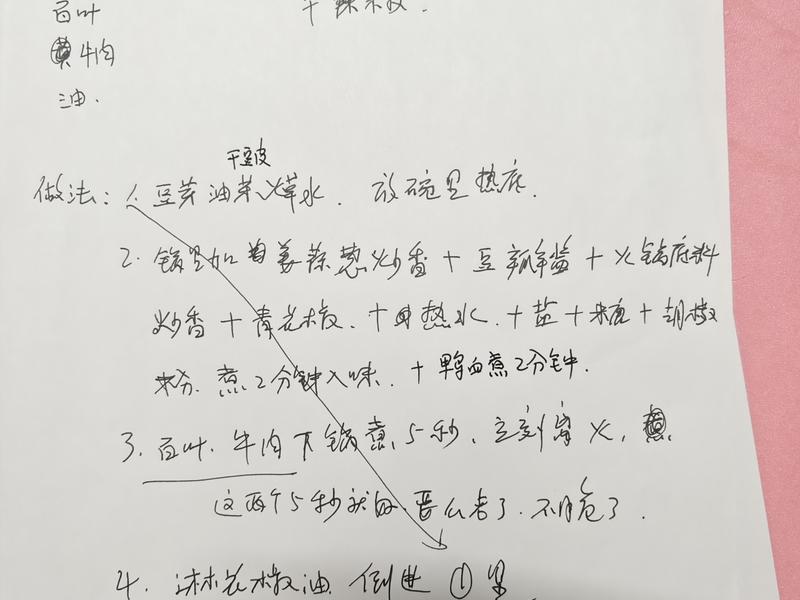 百叶 干辣椒.
黄牛肉
油.
干豆皮
做法: 1. 豆芽油菜焯水. 放碗里热底.
2. 锅里加姜蒜葱炒香 + 豆瓣酱 + 火锅底料
炒香 + 青花椒. + 热水. + 盐 + 糖 + 胡椒
粉. 煮2分钟入味. + 鸭血煮2分钟.
3. 百叶. 牛肉下锅煮5秒, 立刻离火,
这两个5秒就 要么老了. 不脆了.
4. 淋花椒油 倒进 ① 里.